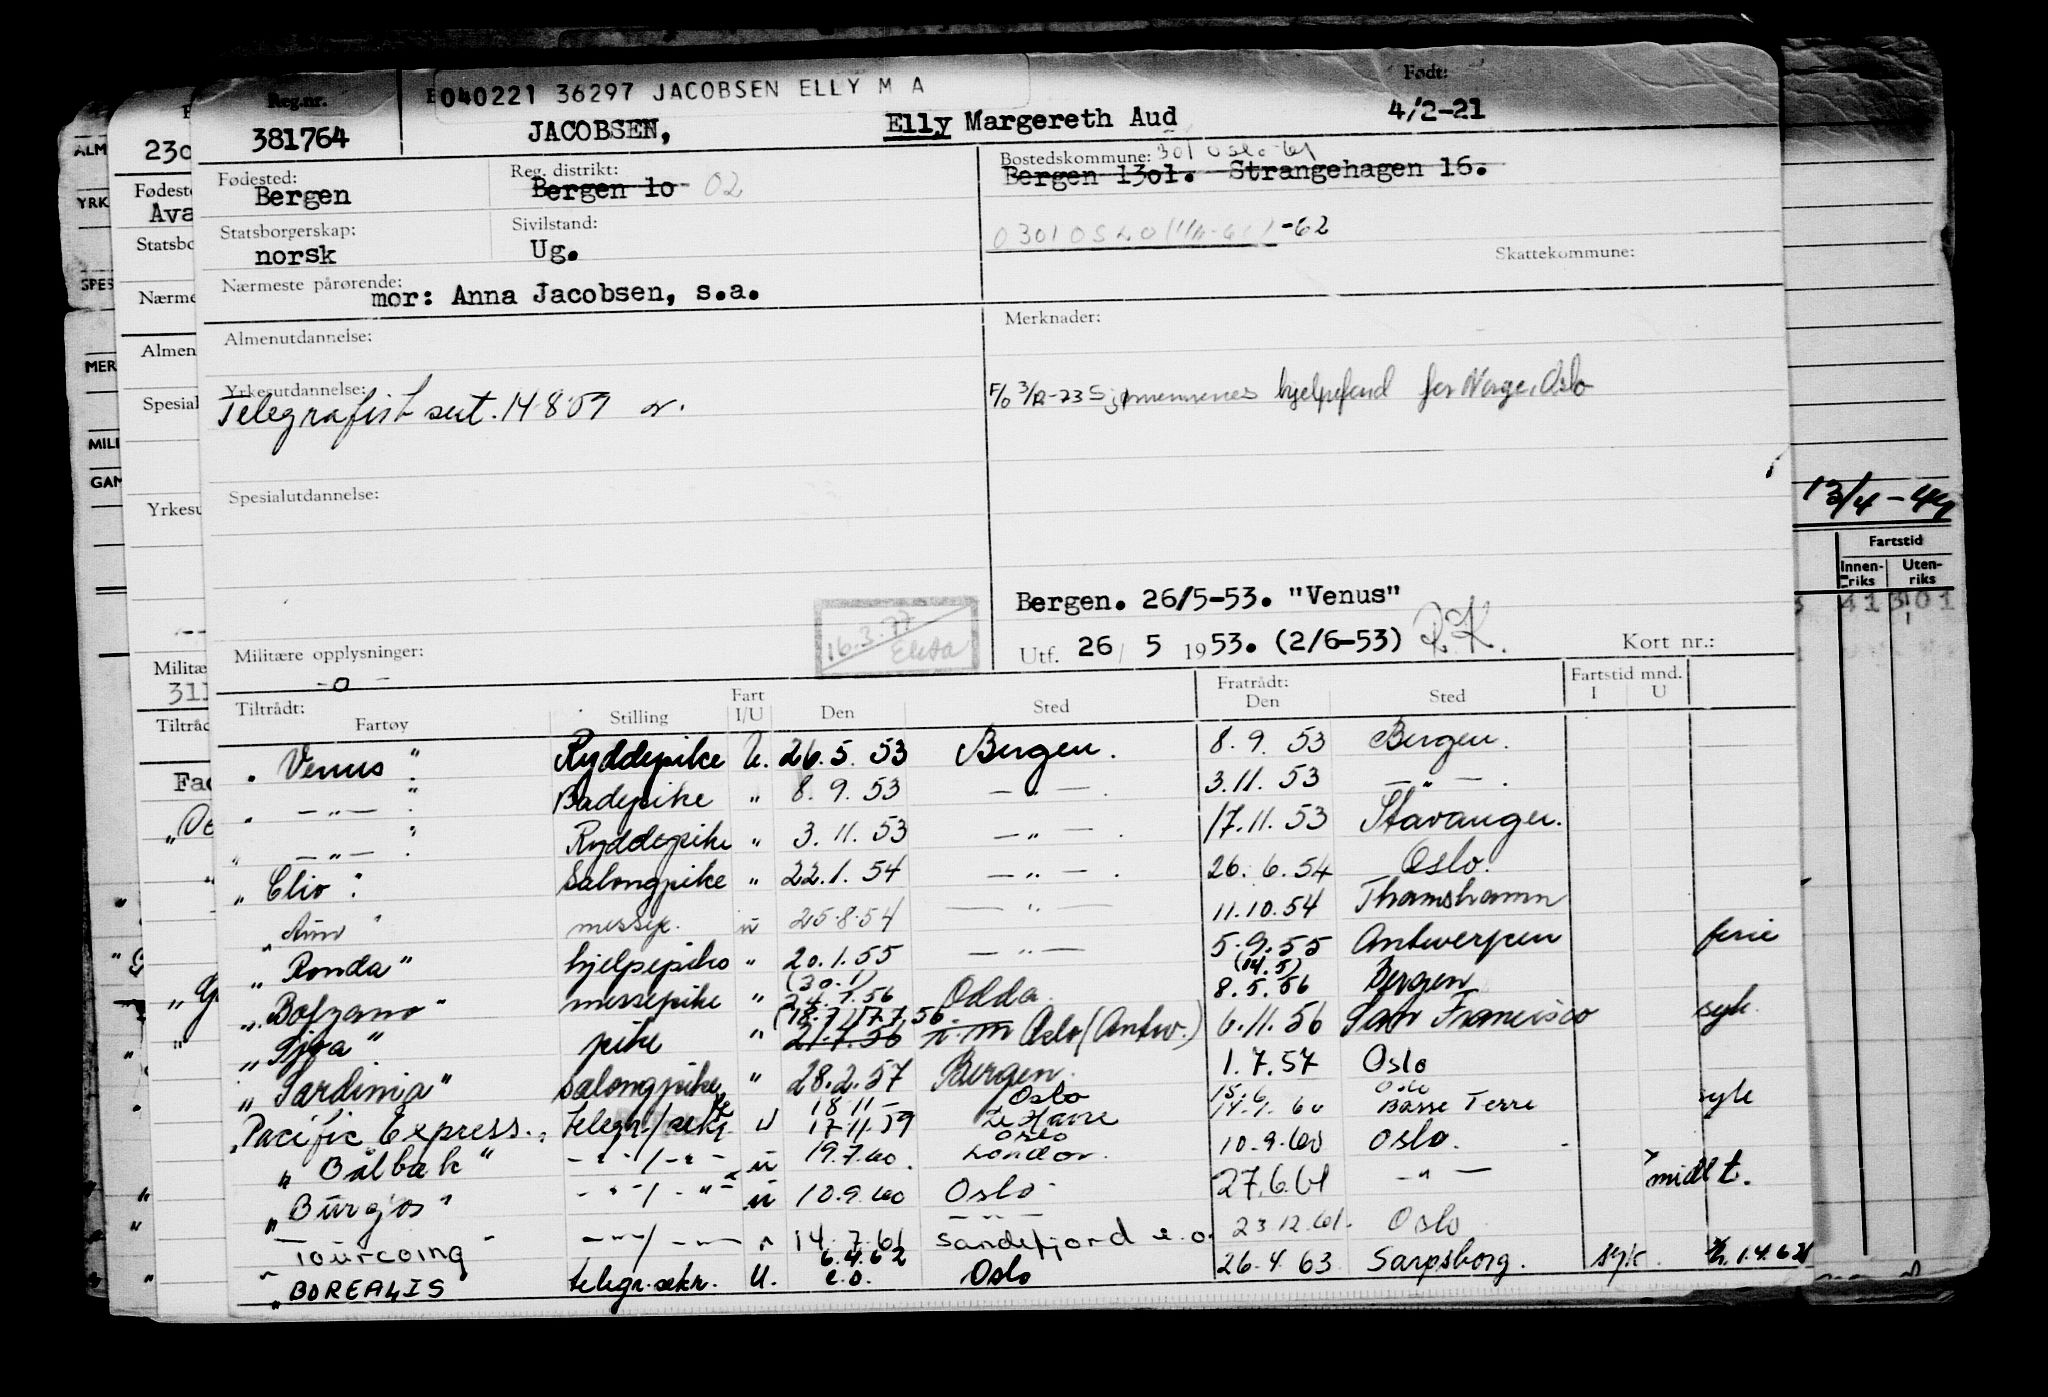 E040221 36297 JACOBSEN ELLY M A
Reg.nr. 381764 JACOBSEN, Elly Margereth Aud Født: 4/2-21
Fødested: Bergen Reg. distrikt: Bergen 10 02 Bostedskommune: 301 Oslo -61
Bergen 1301. Strangehagen 16.
Statsborgerskap: norsk Sivilstand: Ug. 0301 OSLO -62
Skattekommune:
Nærmeste pårørende: mor: Anna Jacobsen, s.a.
Almenutdannelse: Merknader:
Yrkesutdannelse:
Telegrafist sert. 14.8.59
F/O 3/12-73 Sjømennenes hjelpefond for Norge, Oslo
Spesialutdannelse:
13/4-44
Fartstid
Innen-riks Uten-riks
41 301
Bergen. 26/5-53. "Venus"
16.3.77
Utf. 26/5 1953. (2/6-53) R.K. Kort nr.:
Militære opplysninger: -o-
Tiltrådt: Fartøy Stilling Fart I/U Den Sted Fratrådt: Den Sted Fartstid mnd. I U
"Venus" Ryddepike U. 26.5.53 Bergen. 8.9.53 Bergen.
" —"— " Badepike " 8.9.53 —"— . 3.11.53 —"— .
" —"— " Ryddepike " 3.11.53 —"— . 17.11.53 Stavanger.
"Clio" Salongpike " 22.1.54 —"— . 26.6.54 Oslo.
messep. u 25.8.54 —"— 11.10.54 Thamshamn
"Ronda" hjelpepike " 20.1.55 —"— 5.9.55 Antwerpen ferie
"Bolzano" messepike " (30.1) 24.1.56 Odda (14.5) 8.5.56 Bergen
"Sjoa" pike " 21.7.56 17.7.56 Oslo (Antw.) 6.11.56 San Francisco syk.
"Sardinia" salongpike " 28.2.57 Bergen. 1.7.57 Oslo
"Pacific Express" telegr./sekr. U 18.11- 17.11.59 Oslo Le Havre 15.6 14.1.60 Oslo Basse Terre syk
"Bålbak" —"—/—"— u 19.7.60. Oslo London. 10.9.60 Oslo.
"Burgos" —"—/—"— u 10.9.60 Oslo 27.6.61 —"— midlt.
"Tourcoing" —"—/—"— " 14.7.61 Sandefjord e.o. 23.12.61. Oslo
"BOREALIS telegr. sekr. U. 6.4.62 e.o. Oslo 26.4.63 Sarpsborg. syk. 1.4.63